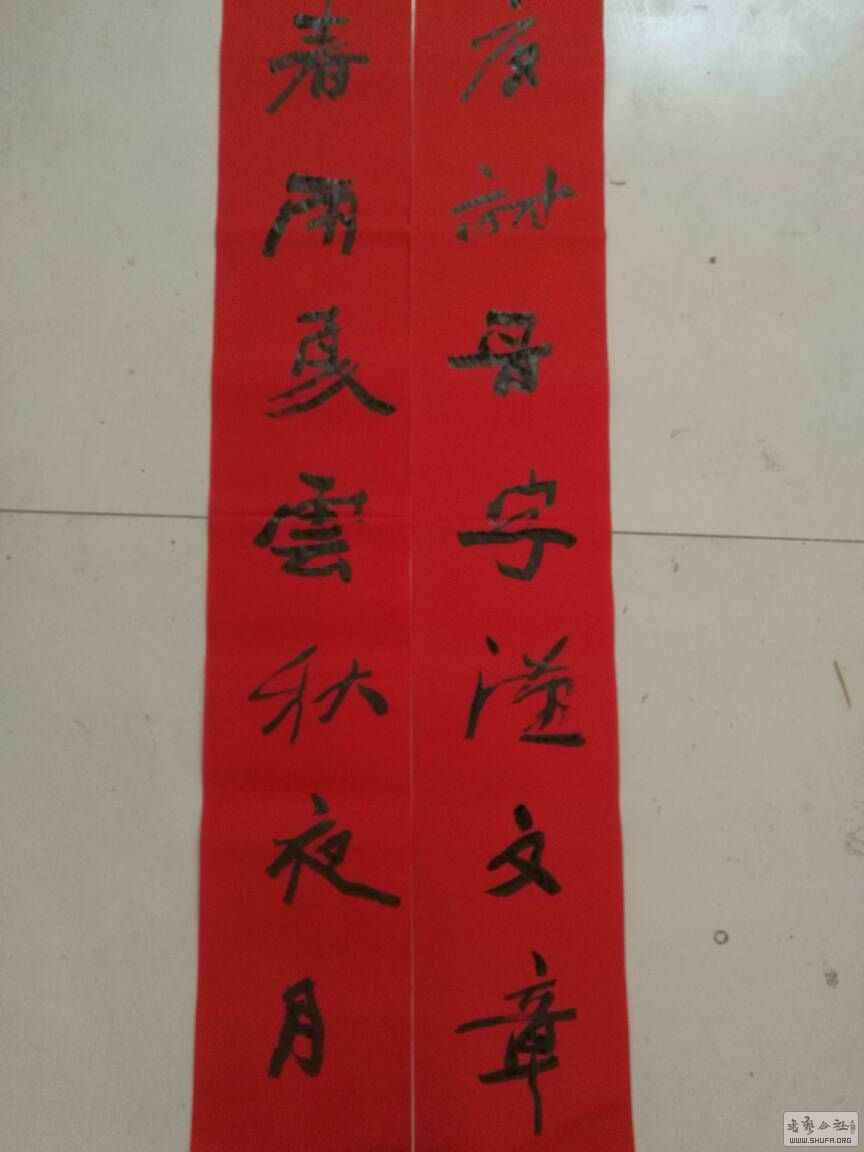 唐詩晉字漢文章
春雨夏雲秋夜月
書藝公社
WWW.SHUFA.ORG